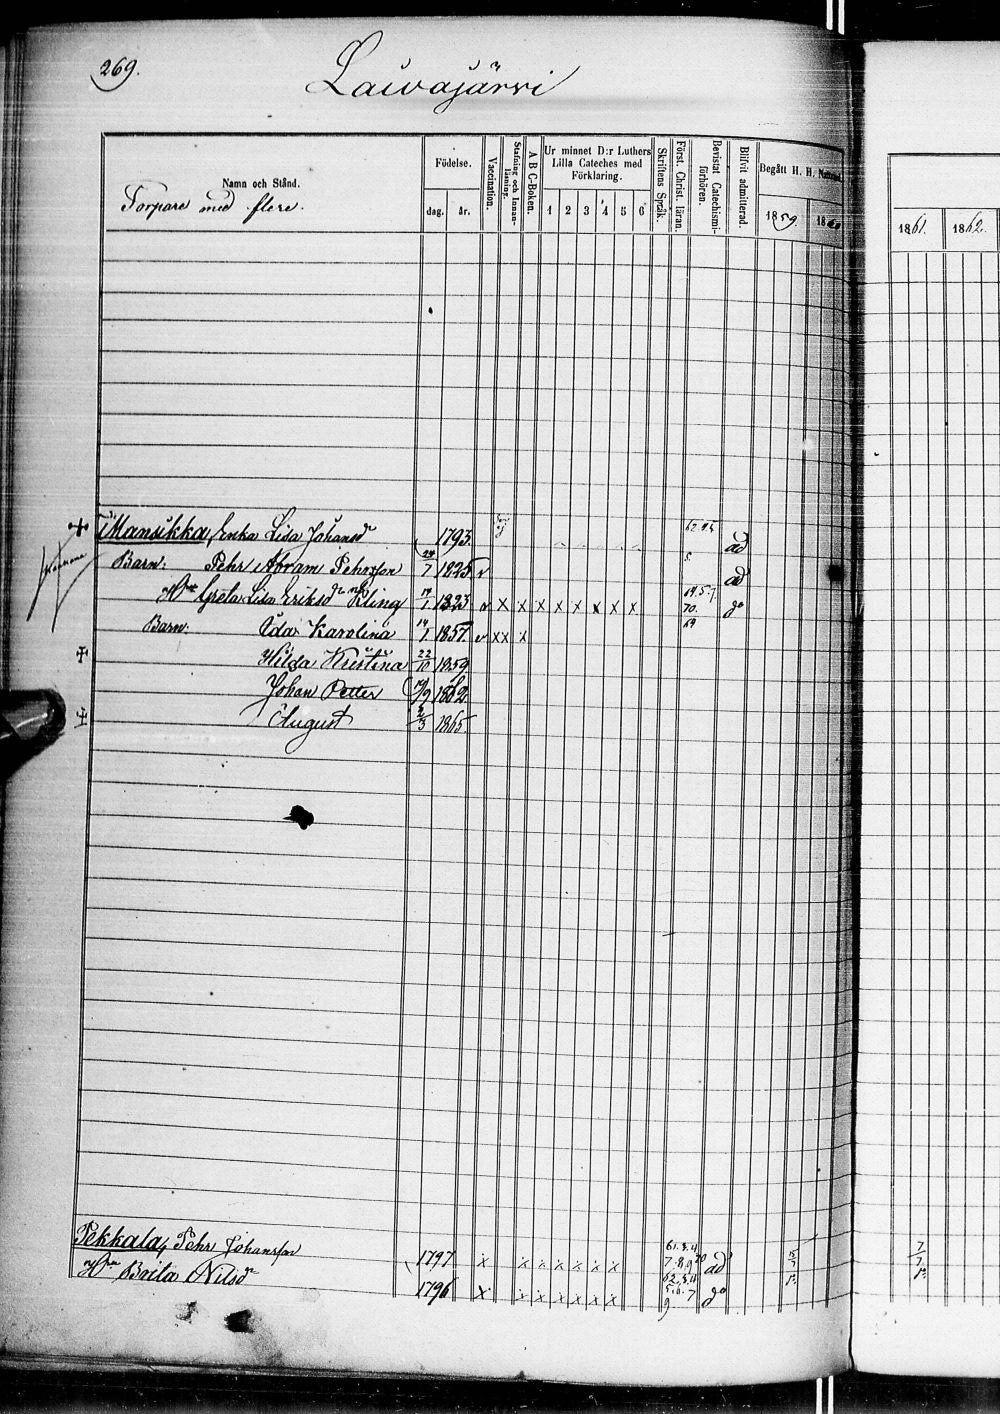 269.
Laivajärvi
Namn och Stånd.
Torpare med flere.
Födelse.
dag. år.
Vaccination.
Stafning och Innan-läsning.
A B C-Boken.
Ur minnet D:r Luthers
Lilla Cateches med
Förklaring.
1 2 3 4 5 6
Skriftens Språk.
Först. Christ. läran.
Bevistat Catechismi-förhören.
Blifvit admitterad.
Begått H. H. Nattvard
1859. 1860
1861. 1862.
Mansikka, Erika Lisa Johansdr 1793. ad
Barn: Pehr Abram Pehrsson 24/7 1825 v ad
Hru Greta Lisa Eriksdr Kling 1/1 1823 v x x x x x x x x 70. do
Barn: Ida Karolina 14/1 1857. v x x x 69
Hilda Kristina 22/10 1859
Johan Petter 1862.
August 1865.
Pekkala, Pehr Johansson 1797 x x x x x x x 61.3.4 7.8.9 ad
Hru Brita Nilsdr 1796 x x x x x x x 62.3.4 5.6.7 9 do